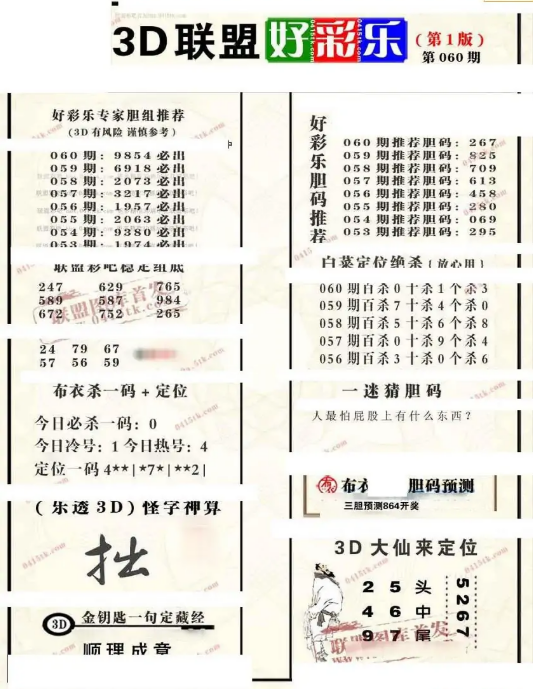 3D联盟好彩乐
(第1版)
第060期
好彩乐专家胆组推荐
(3D有风险 谨慎参考)
060期: 9854必出
059期: 6918必出
058期: 2073必出
057期: 3217必出
056期: 1957必出
055期: 2063必出
054期: 9380必出
053期: 1974必出
联盟彩吧稳定组底
247 629 765
589 587 984
672 752 265
24 79 67
57 56 59
布衣杀一码+定位
今日必杀一码: 0
今日冷号: 1 今日热号: 4
定位一码 4**|*7*|**2|
(乐透3D)怪字神算
拙
3D 金钥匙一句定藏经
顺理成章
好彩乐胆码推荐
060期推荐胆码: 267
059期推荐胆码: 825
058期推荐胆码: 709
057期推荐胆码: 613
056期推荐胆码: 458
055期推荐胆码: 280
054期推荐胆码: 069
053期推荐胆码: 295
白菜定位绝杀(放心用)
060期百杀0十杀1个杀3
059期百杀7十杀4个杀0
058期百杀5十杀6个杀8
057期百杀0十杀9个杀4
056期百杀3十杀0个杀6
一迷猜胆码
人最怕屁股上有什么东西?
布衣 胆码预测
三胆预测864开奖
3D大仙来定位
2 5 头
4 6 中
9 7 尾
5267